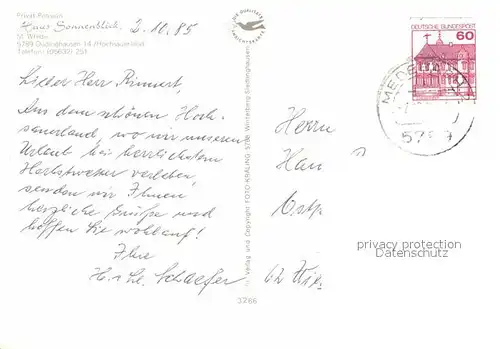 Privat-Pension
Haus Sonnenblick, 2.10.85
5789 Düdinghausen 14 /Hochsauerland
Telefon: (05632) 251
Lieber Herr Rinnert,
Aus dem schönen Hoch-
sauerland, wo wir unseren
Urlaub bei herrlichstem
Herbstwetter verleben
senden wir Ihnen
herzliche Grüße und
hoffen Sie wohlauf!
Ihre
H. u. Schaefer
Verlag und Copyright FOTO KRALING 5788 Winterberg-Siedlinghausen
3766
DEUTSCHE BUNDESPOST
60
MEDE
Herrn
Han
Ostp
62
privacy protection
Datenschutz